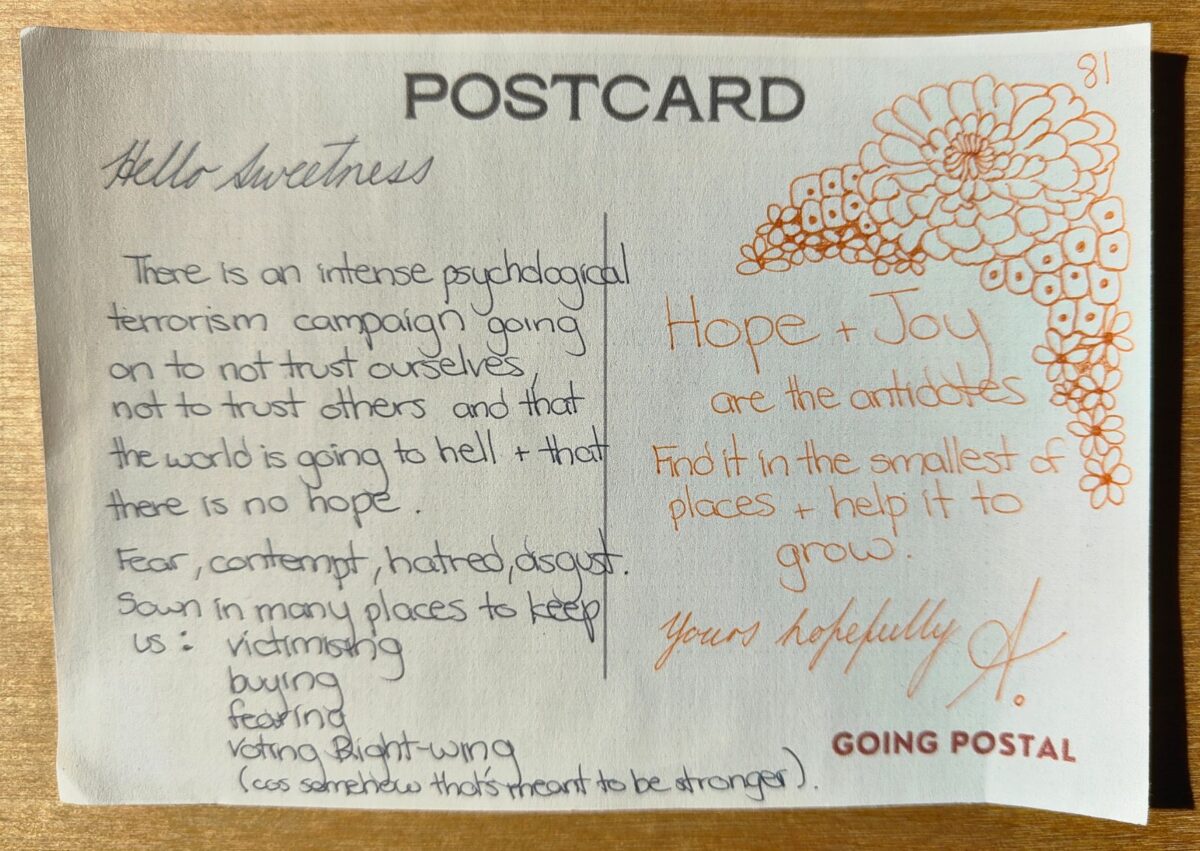 POSTCARD
81
Hello Sweetness
There is an intense psychological
terrorism campaign going
on to not trust ourselves,
not to trust others and that
the world is going to hell + that
there is no hope.
Fear, contempt, hatred, disgust.
Sown in many places to keep
us: victimising
buying
fearing
voting Right-wing
(cos somehow that's meant to be stronger).
Hope + Joy
are the antidotes
Find it in the smallest of
places + help it to
grow.
Yours hopefully A.
GOING POSTAL